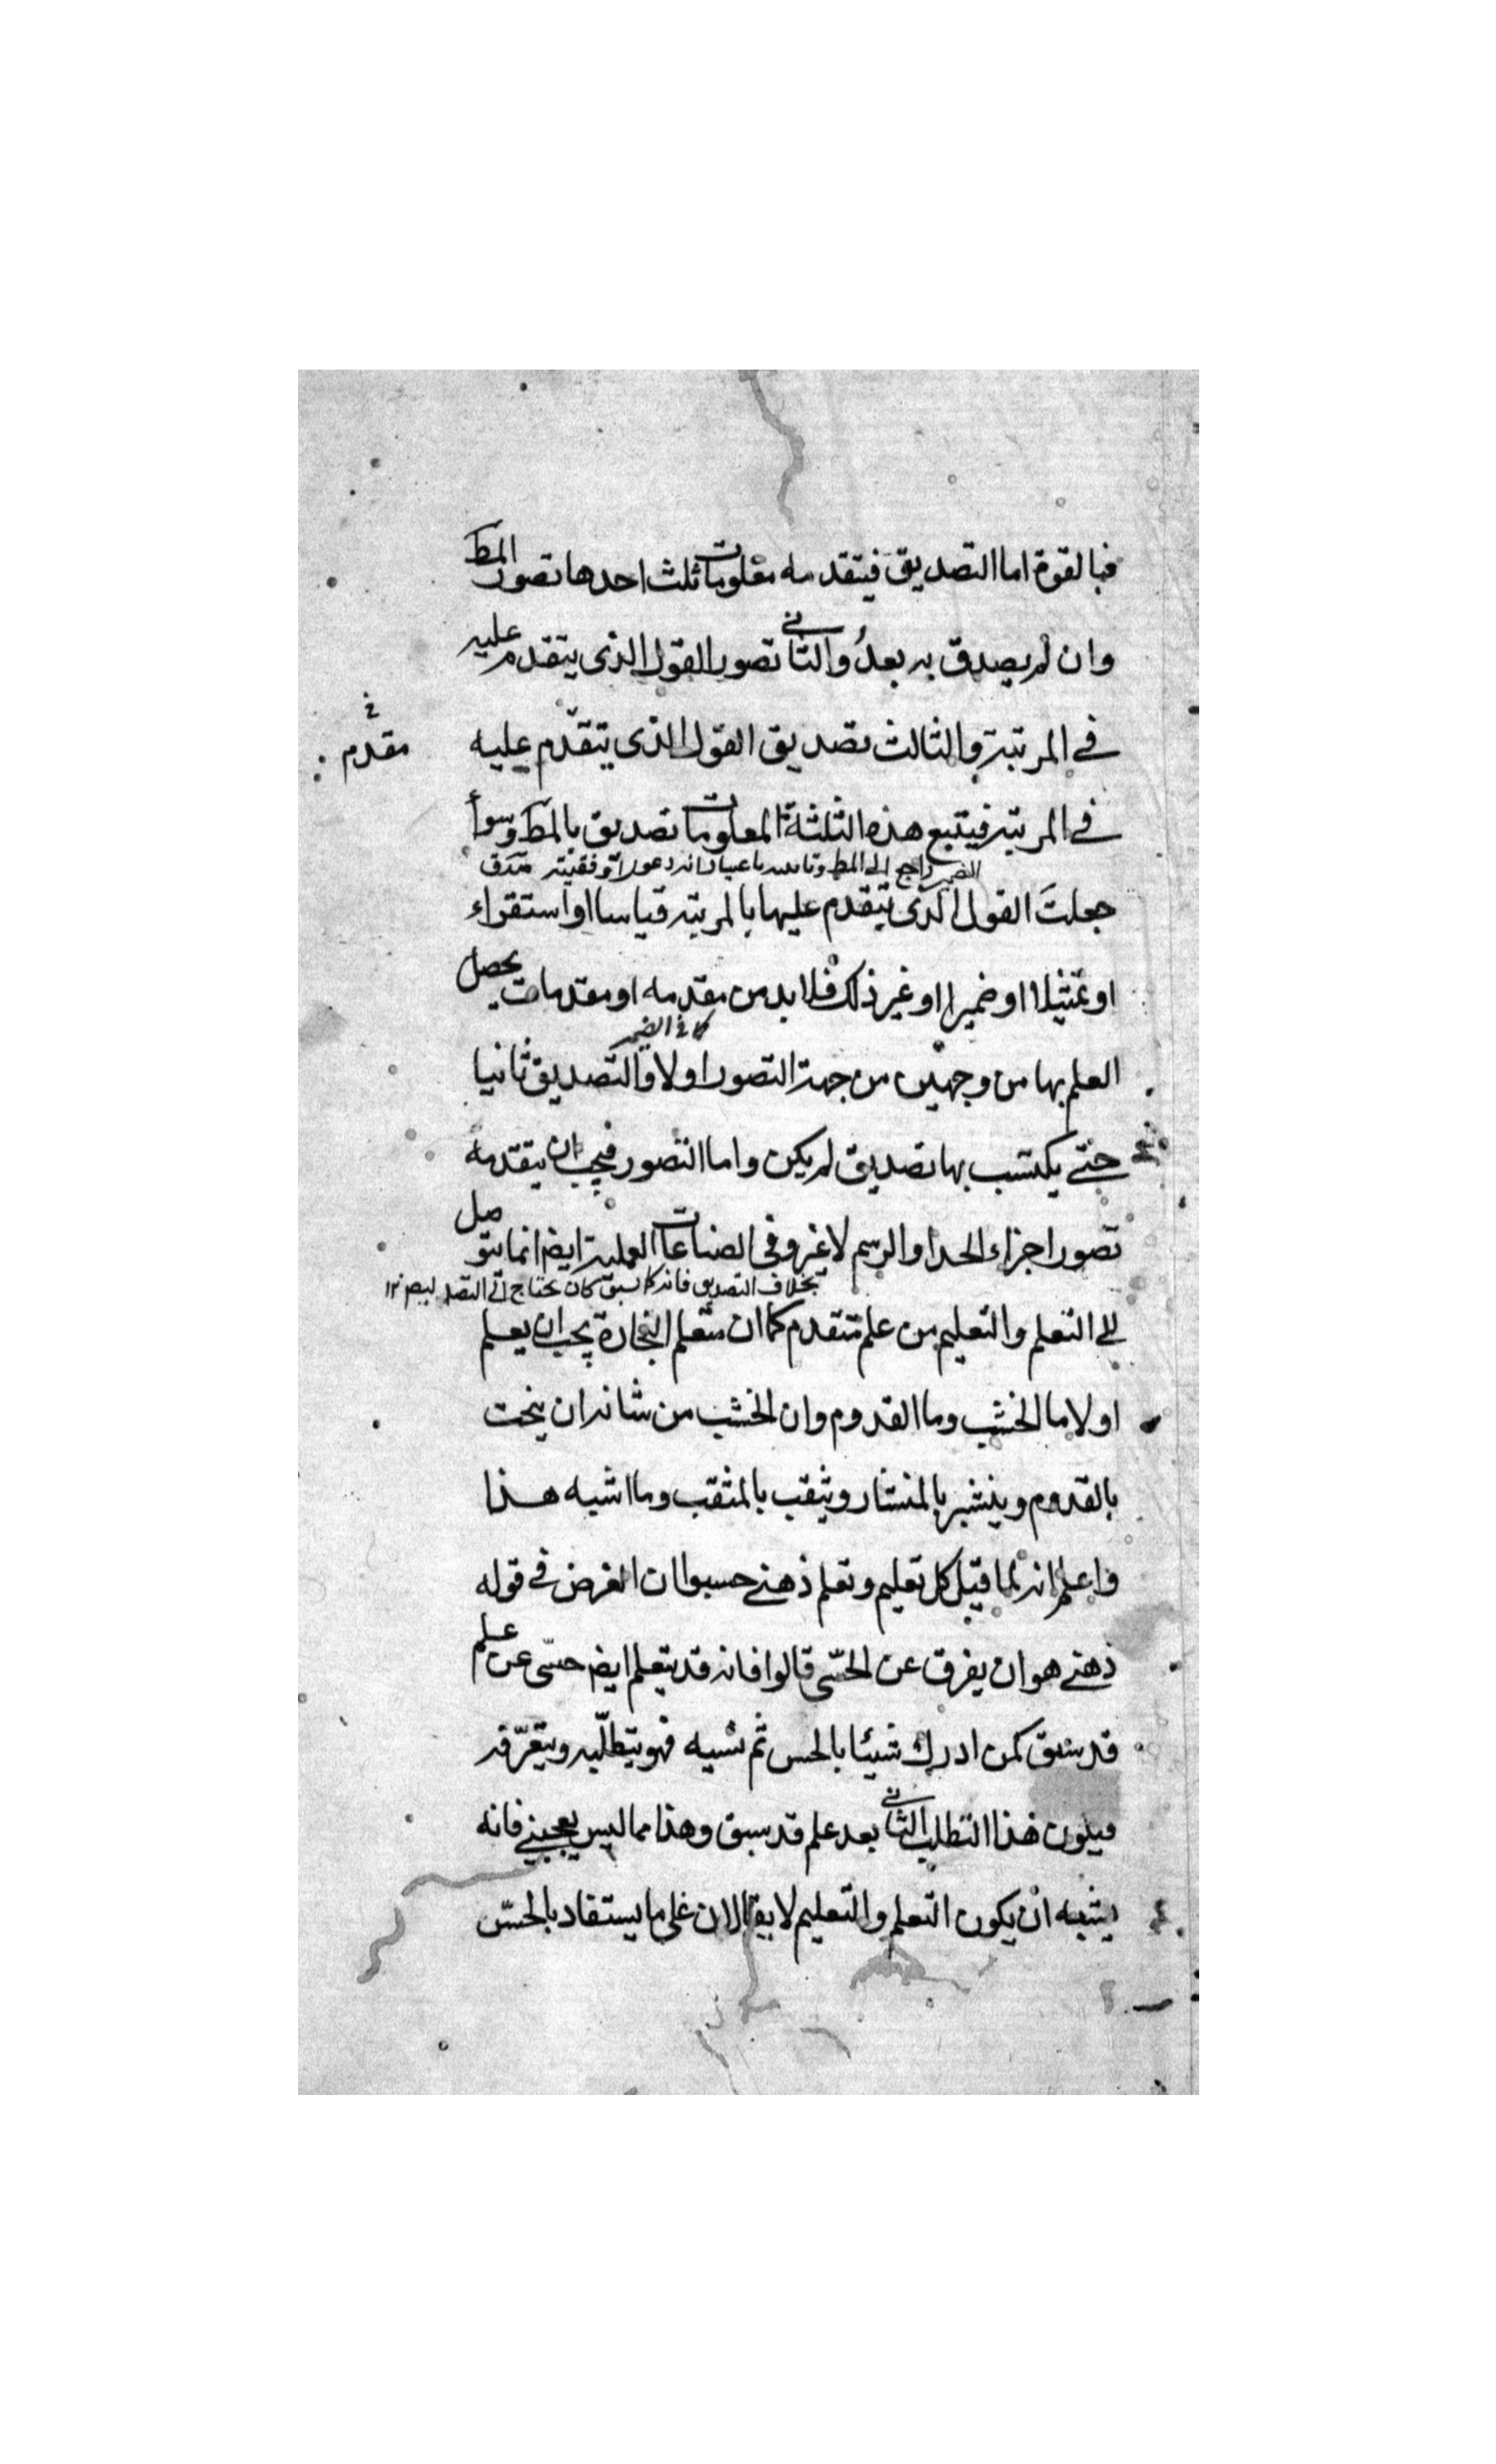 فبالقوة اما التصديق فيتقدمه معلومات ثلث احدها تصور المط
وان لم يصدق به بعدُ والثاني تصور القول الذى يتقدم عليه
في المرتبة والثالث تصديق القول الذى يتقدّم عليه
مقدم
في المرتبة فيتبع هذه الثلثة المعلومات تصديق بالمط وسوأ
الضمير راجع الى المط
جعلتَ القول الذى يتقدم عليها بالمرتبة قياسا او استقراء
او تمثيلا او ضميرا او غير ذلك فلا بد من مقدمه او مقدمات يحصل
كما في الضمير
العلم بها من وجهين من جهة التصور اولا والتصديق ثانيا
حتے يكتسب بها تصديق لم يكن واما التصور فيجب ان يتقدمه
تصور اجزاء الحد او الرسم لا غير وفى الصناعات العملية ايضا انما يتوصل
بخلاف التصديق فانه كما سبق كان يحتاج الى
الے التعلم والتعليم من علم متقدم كما ان متعلم النجارة يجب ان يعلم
اولا ما الخشب وما القدوم وان الخشب من شانه ان ينحت
بالقدوم وينشر بالمنشار ويثقب بالمثقب وما اشبه هذا
واعلم انه لما قيل كل تعليم وتعلم ذهنے حسبوا ان الغرض في قوله
ذهنے هو ان يفرق عن الحسّى قالوا فانه قد يتعلم ايض حسّى عن علم
قد سبق كمن ادرك شيئا بالحس ثم نسيه فهو يتطلّبه ويتعرّفه
فيكون هذا التطلب الثاني بعد علم قد سبق وهذا مما ليس يعجبنے فانه
يشبه ان يكون التعلم والتعليم لا يقالان على ما يستفاد بالحسّ